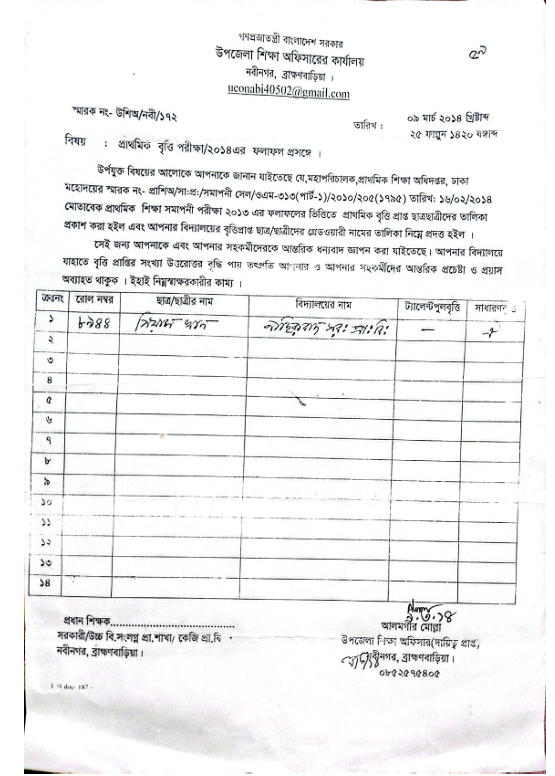 গণপ্রজাতন্ত্রী বাংলাদেশ সরকার
উপজেলা শিক্ষা অফিসারের কার্যালয়
নবীনগর, ব্রাহ্মণবাড়িয়া ।
uconabi40502@gmail.com
স্মারক নং- উশিঅ/নবী/১৭২
তারিখ :
০৯ মার্চ ২০১৪ খ্রিষ্টাব্দ
২৫ ফাল্গুন ১৪২০ বঙ্গাব্দ
বিষয় : প্রাথমিক বৃত্তি পরীক্ষা/২০১৪এর ফলাফল প্রসঙ্গে ।
উপর্যুক্ত বিষয়ের আলোকে আপনাকে জানান যাইতেছে যে,মহাপরিচালক,প্রাথমিক শিক্ষা অধিদপ্তর, ঢাকা
মহোদয়ের স্মারক নং- প্রাশিঅ/সা:প্র:/সমাপনী সেল/ওএম-৩১৩(পার্ট-১)/২০১০/২০৫(১৭৯৫) তারিখ: ১৬/০২/২০১৪
মোতাবেক প্রাথমিক শিক্ষা সমাপনী পরীক্ষা ২০১৩ এর ফলাফলের ভিত্তিতে প্রাথমিক বৃত্তি প্রাপ্ত ছাত্রছাত্রীদের তালিকা
প্রকাশ করা হইল এবং আপনার বিদ্যালয়ের বৃত্তিপ্রাপ্ত ছাত্র/ছাত্রীদের গ্রেডওয়ারী নামের তালিকা নিম্নে প্রদত্ত হইল ।
সেই জন্য আপনাকে এবং আপনার সহকর্মীদেরকে আন্তরিক ধন্যবাদ জ্ঞাপন করা যাইতেছে। আপনার বিদ্যালয়ে
যাহাতে বৃত্তি প্রাপ্তির সংখ্যা উত্তরোত্তর বৃদ্ধি পায় তৎপ্রতি আপনার ও আপনার সহকর্মীদের আন্তরিক প্রচেষ্টা ও প্রয়াস
অব্যাহত থাকুক । ইহাই নিম্নস্বাক্ষরকারীর কাম্য ।
ক্রঃনং রোল নম্বর ছাত্র/ছাত্রীর নাম বিদ্যালয়ের নাম ট্যালেন্টপুলবৃত্তি সাধারণবৃত্তি
১ ৮৯৪৪ খান —
২
৩
৪
৫
৬
৭
৮
৯
১০
১১
১২
১৩
১৪
৯.৩.১৪
প্রধান শিক্ষক
আলমগীর মোল্লা
সরকারী/উচ্চ বি.সংলগ্ন প্রা.শাখা/ কেজি প্রা.বি
উপজেলা শিক্ষা অফিসার(দায়িত্ব প্রাপ্ত)
নবীনগর, ব্রাহ্মণবাড়িয়া ।
নবীনগর, ব্রাহ্মণবাড়িয়া ।
০৮৫২৫৭৫৪০৫